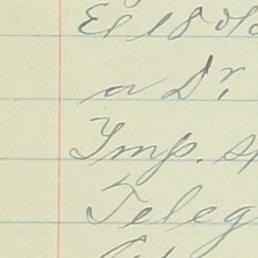 El 18 de
a Dr.
Imp.
Teleg